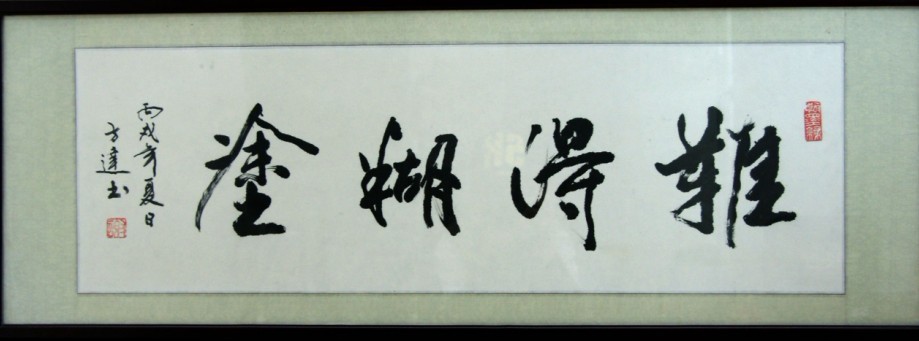 難得糊塗
丙戌年夏日
方達书